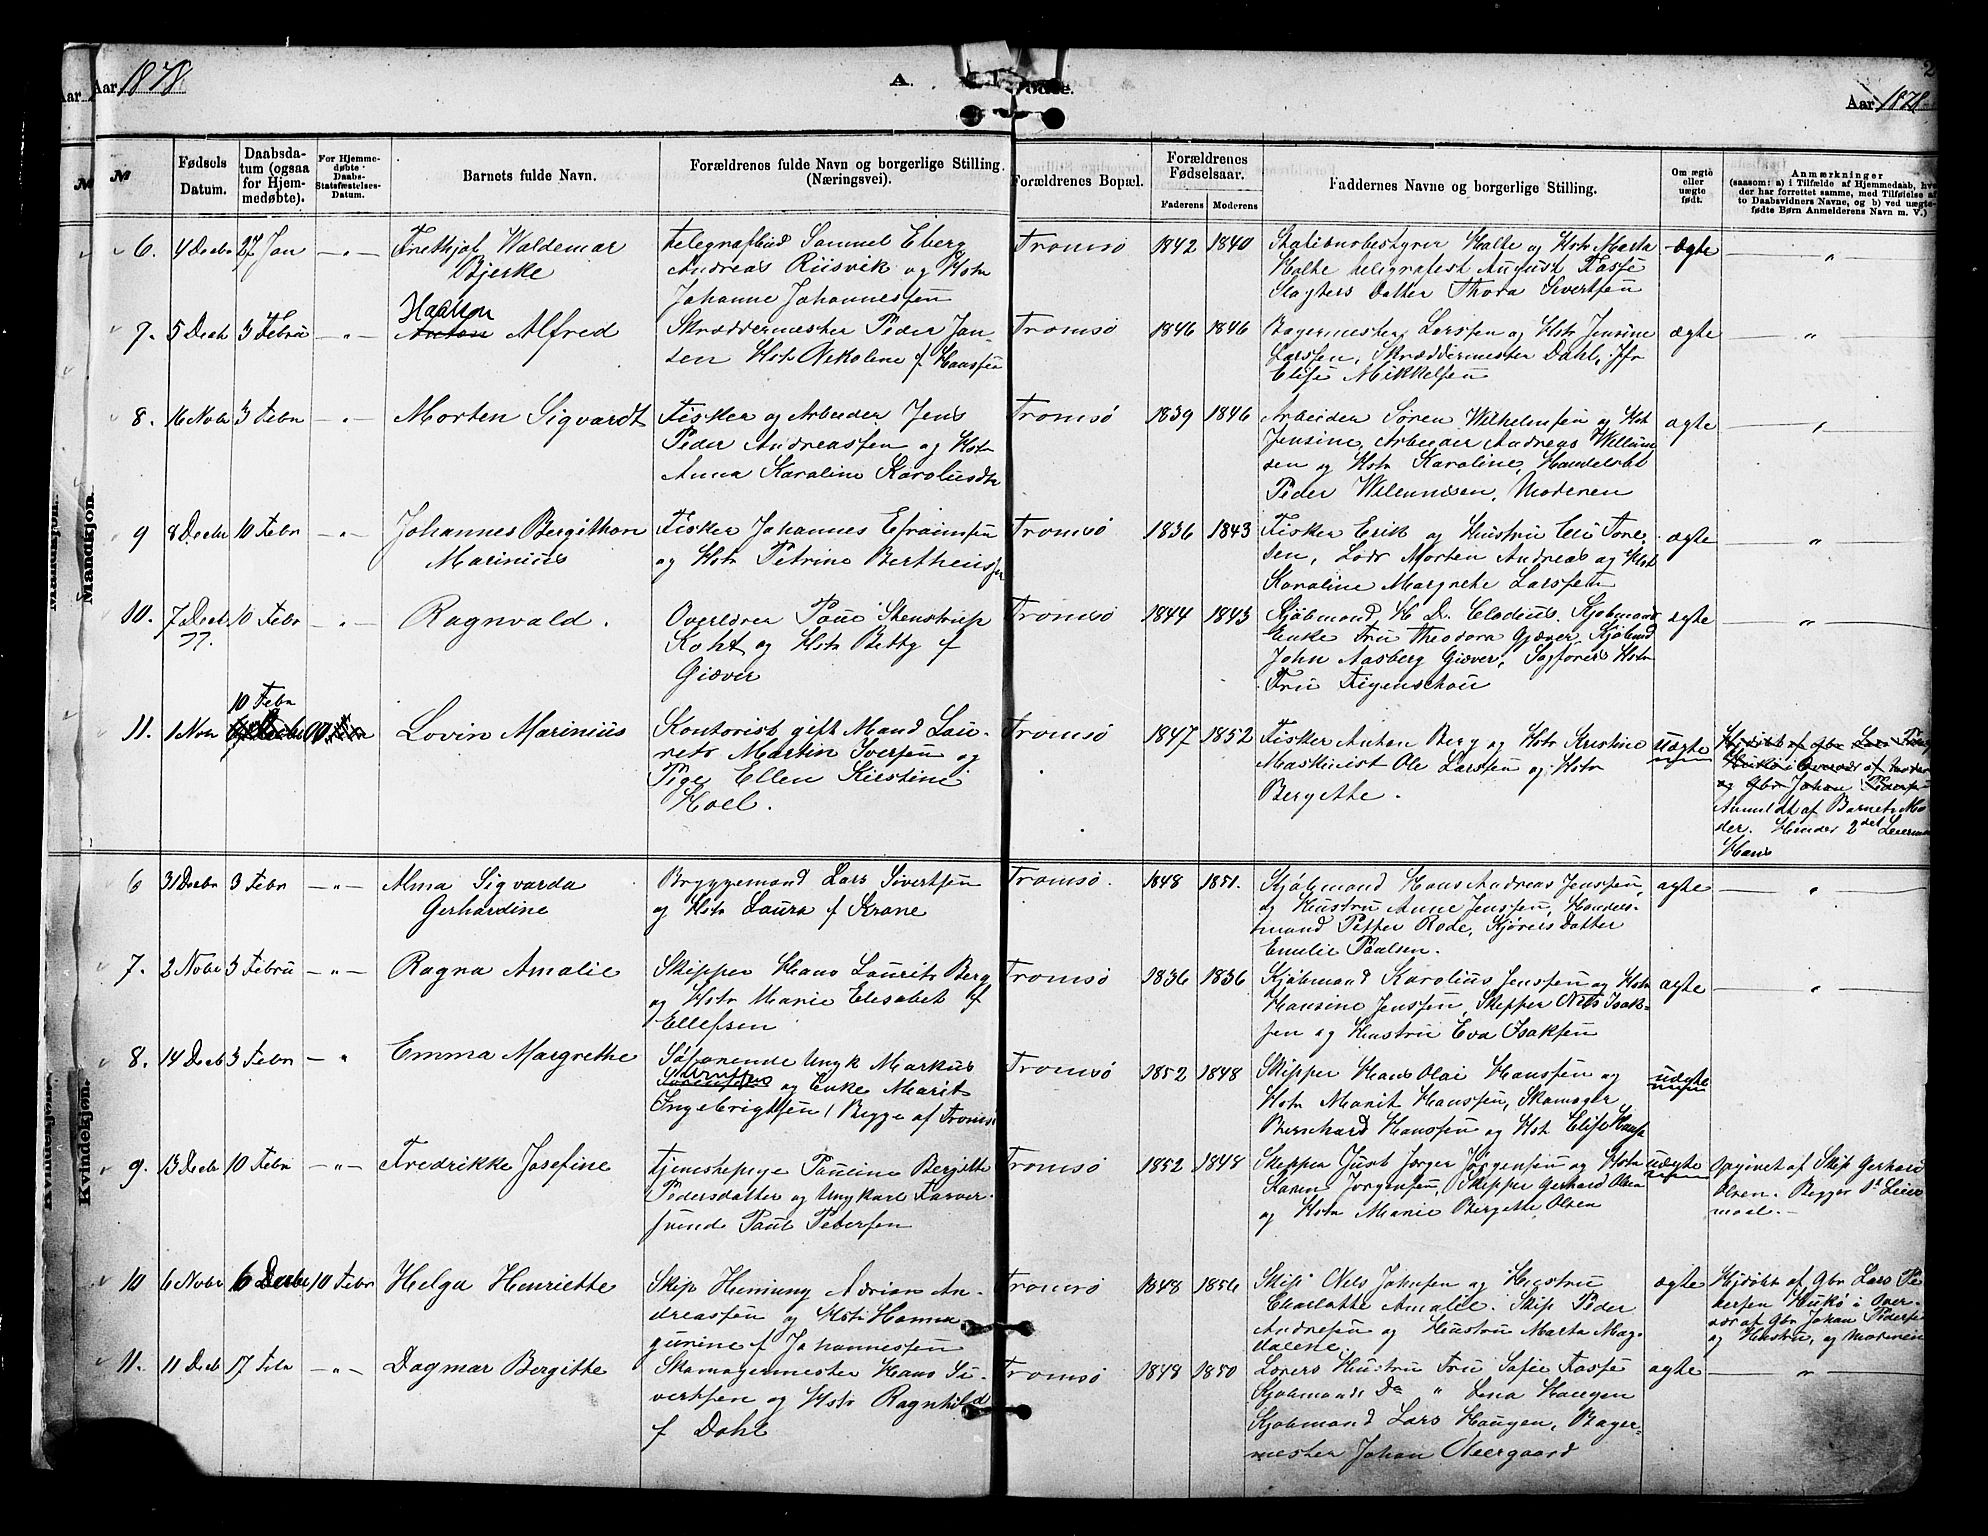 Aar 1878.
A.
Fødte.
Aar 1878.
2
№
Fødsels Datum.
Daabsdatum (ogsaa for Hjemmedøbte).
For Hjemmedøbte Daabs-Stadfæstelses-Datum.
Barnets fulde Navn.
Forældrenes fulde Navn og borgerlige Stilling. (Næringsvei).
Forældrenes Bopæl.
Forældrenes Fødselsaar.
Faderens
Moderens
Faddernes Navne og borgerlige Stilling.
Om ægte eller uægte født.
Anmærkninger
(saasom: a) i Tilfælde af Hjemmedaab, hve
der har forrettet samme, med Tilføielse af
to Daabsvidners Navne, og b) ved uægte-
fødte Børn Anmelderens Navn m. V.)
Mandkjøn.
6. 4 Decbr 27 Jan — " — Frethjof Waldemar
Bjerke
Telegrafbud Samuel Eberg
Andreas Riisvik og Hstr
Johanne Johannessen
Tromsø 1842 1840
Stationsbestyrer Holte og Hstr Marta
Holte telegrafist August Fasse
Slagters Datter Thora Sivertsen
ægte — " —
7. 5 Decb 3 Febru — " — Haakon
Anton Alfred
Skræddermester Peder Jan-
sen Hstr Nikoline f Hanssen
Tromsø 1846 1846
Bagermester Larssen og Hstr Jensine
Larssen, Skræddermester Dahl, Jfr
Elise Mikkelsen
ægte — " —
8. 16 Nobr 3 Febr — " — Morten Sigvardt
Fisker og Arbeider Jens
Peder Andreassen og Hstr
Anna Karoline Karolusdtr
Tromsø 1839 1846
Arbeider Søren Wilhelmsen og Hst
Jensine, Arbeider Andreas Willum
sen og Hstr Karoline, Handelsbt
Peder Willumsen, Moderen
ægte — " —
9 8 Decbr 10 Febr — " — Johannes Bergithon
Marinius
Fisker Johannes Efraimsen
og Hstr Petrine Bertheus
Tromsø 1836 1843
Fisker Erik og Hustru Eli Tore
sen, Lods Morten Andreas og Hst
Karoline Margrethe Larssen
ægte — " —
10. 7 Decb 10 Febr — " — Ragnvald.
77.
Overlærer Paul Stenstrup
Koht og Hstr Betty f
Giæver
Tromsø 1844 1843
Kjøbmand H D. Clodius. Kjøbmands
Enke Fru Theodora Giæver Kjøbmd
John Aasberg Giæver, Sagførers Hstr
Fru Figenschou
ægte — " —
11. 1 Nov 10 Febr
Lovin Marinius
Kontorist gift Mand Lau-
rets Martin Iversen og
Pige Ellen Kirstine
Hoel.
Tromsø 1847 1852
Fisker Anton Berg og Hstr Kristine
Maskinist Ole Larssen og Hstr
Bergethe.
Uægte
Hjdøbt af Gbr Lars Peder
og Gbr Johan Pederse
Anmeldt af Barnets Mo
der. Hendes 2det Leierm
Hans
Kvindekjøn.
6 31 Decbr 3 Febr — " — Alma Sigvarda
Gerhardine
Bryggemand Lars Sivertsen
og Hstr Laura f Krane
Tromsø. 1848 1851.
Kjøbmand Hans Andreas Jenssen,
og Hustru Anne Jenssen, Handels-
mand Petter Rode, Kjøreds Datter
Emelie Paulsen.
ægte — " —
7. 2 Nobr 3 Febru — " — Ragna Amalie
Skipper Hans Laurits Berg
og Hstr Marie Elisabet f
Ellefsen
Tromsø 1836 1836
Kjøbmand Karolius Jenssen og Hstr
Hansine Jenssen, Skipper Nils Isak-
sen og Hustru Eva Isaksen
ægte — " —
8. 14 Decb 3 Febr — " Emma Margrethe
Søfarende Ungk Markus
og Enke Marit
Ingebrigtsen / Begge af Tromsø
Tromsø 1852 1848
Skipper Hans Olai Hanssen og
Hstr Marit Hanssen, Skomager
Bernhard Hanssen og Hst Elise Hanss
uægte
9. 13 Decbr 10 Febr — " — Fredrikke Josefine
Tjenestepige Pauline Bergitte
Pedersdatter og Ungkarl Farver-
svend Paul Petersen
Tromsø 1852 1848
Skipper Just Jørger Jørgensen og Hstr
Karen Jørgensen, Skipper Gerhard Olsen
og Hstr Marie Bergette Olsen
uægte
Opgivet af Skip Gerhard
Olsen. Begges 1st Leier
maal. —
10 6 Nobr 6 Decbr 10 Febr Helga Henriette
Skip Heming Adrian An-
dreassen og Hstr Hanna
gurine f Johannessen
Tromsø 1848 1856
Skip Nels Johnsen og Hustru
Charlotte Amalie. Skip Peder
Andresen og Hustru Marta Mag-
dalene
ægte
Hjdøbt af Gbr Lars Pe
dersen Hukø i Over-
vær af Gbr Johan Peders
og Hustru, og Moderen
11. 11 Decb 17 Febr — " — Dagmar Bergitte
Skomagermester Hans Si-
vertsen og Hstr Ragnhild
f Dahl
Tromsø 1848 1850
Lorers Hustru Fru Sofie Fasse
Kjøbmands Do " Lena Haugen
Kjøbmand Lars Haugen, Bager-
mester Johan Neergaard
ægte — " —